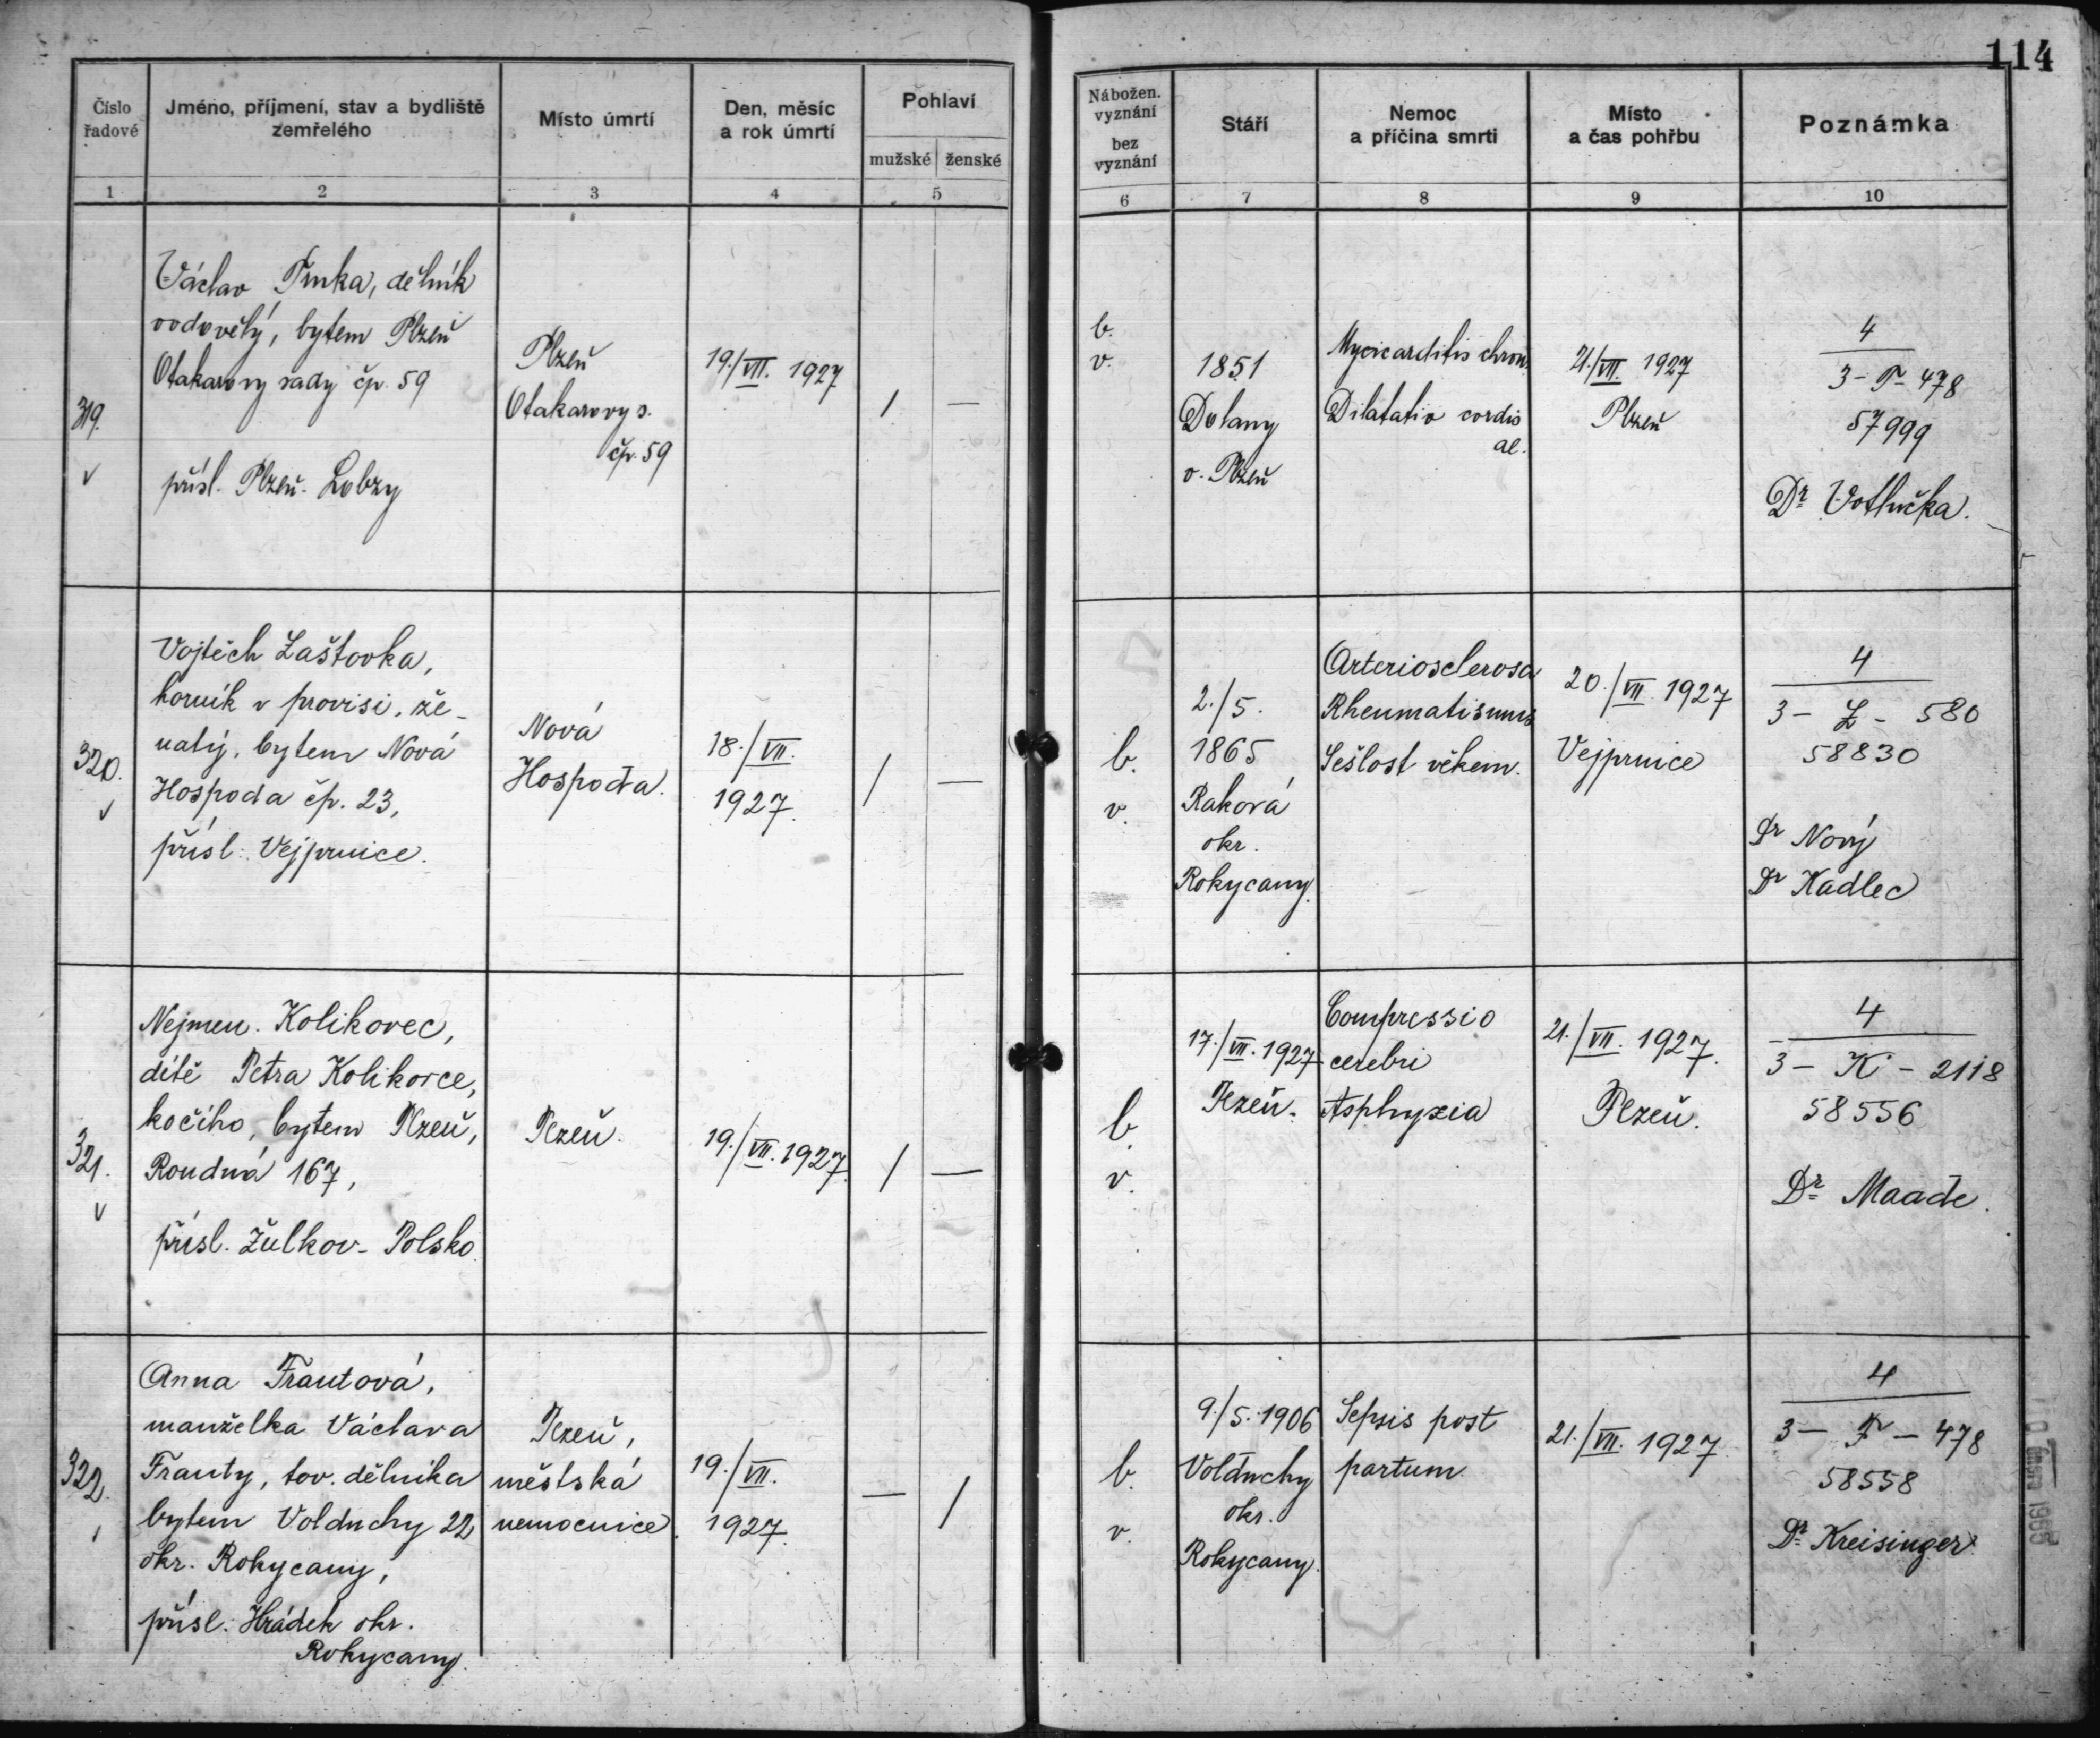 114
Číslo
řadové
Jméno, příjmení, stav a bydliště
zemřelého
Místo úmrtí
Den, měsíc
a rok úmrtí
Pohlaví
mužské
ženské
Nábožen.
vyznání
bez
vyznání
Stáří
Nemoc
a příčina smrti
Místo
a čas pohřbu
Poznámka
1
2
3
4
5
6
7
8
9
10
319.
v
Václav Trnka, dělník
vodověly, bytem Plzeň
Otakarovy sady čp. 59
přísl. Plzeň-Lobzy
Plzeň
Otakarovy s.
čp. 59
19./VII. 1927
/
—
b.
v.
1851
Dolany
o. Plzeň
Myocarditis chron.
Dilatatio cordis
ac.
21./VII. 1927
Plzeň
4
3 - T - 478
57999
Dr Votlučka.
320.
v
Vojtěch Laštovka,
horník v provisi, že-
natý, bytem Nová
Hospoda čp. 23,
přísl. Vejprnice.
Nová
Hospoda.
18./VII.
1927.
/
—
b.
v.
2./5.
1865
Raková
okr.
Rokycany.
Arteriosclerosa
Rheumatismus
Sešlost věkem.
20./VII. 1927
Vejprnice
4
3 - L - 580
58830
Dr Nový
Dr Kadlec
321.
v
Nejmen. Kolikovec,
dítě Petra Kolikovce,
kočího, bytem Plzeň,
Roudná 167,
přísl. Žulkov - Polsko.
Plzeň.
19./VII. 1927.
/
—
b.
v.
17./VII. 1927
Plzeň.
Compressio
cerebri
Asphyxia
21./VII. 1927.
Plzeň.
4
3 - K - 2118
58556
Dr Maade.
322.
Anna Frantová,
manželka Václava
Franty, tov. dělníka
bytem Volduchy 22,
okr. Rokycany,
přísl. Hrádek okr.
Rokycany.
Plzeň,
městská
nemocnice.
19./VII.
1927.
—
/
b.
v.
9./5. 1906
Volduchy
okr.
Rokycany.
Sepsis post
partum.
21./VII. 1927.
4
3 - F - 478
58558
Dr Kreisinger.